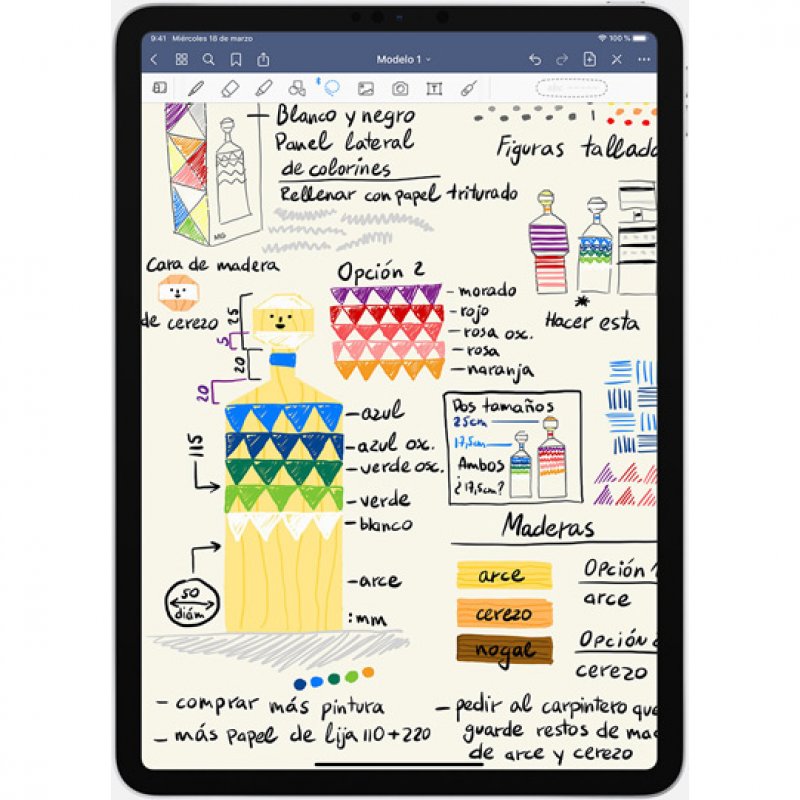 9:41 Miércoles 18 de marzo
100 %
Modelo 1
Blanco y negro
Panel lateral
de colorines
Rellenar con papel triturado
MG
Figuras tallada
Hacer esta
Cara de madera
de cerezo
Opción 2
morado
rojo
rosa osc.
rosa
naranja
25
5
20
20
115
azul
azul osc.
verde osc.
verde
blanco
arce
:mm
50
diám.
Dos tamaños
25cm
17,5cm
Ambos
¿17,5cm?
Maderas
arce
cerezo
nogal
Opción 1
arce
Opción
cerezo
- comprar más pintura
- más papel de lija 110 + 220
- pedir al carpintero que
guarde restos de ma
de arce y cerezo